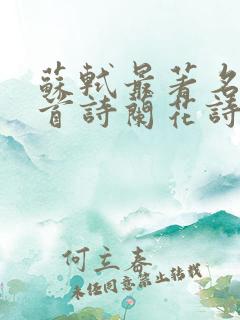 蘇軾最著名
首詩蘭花詩
何立春
未經同意禁止轉載